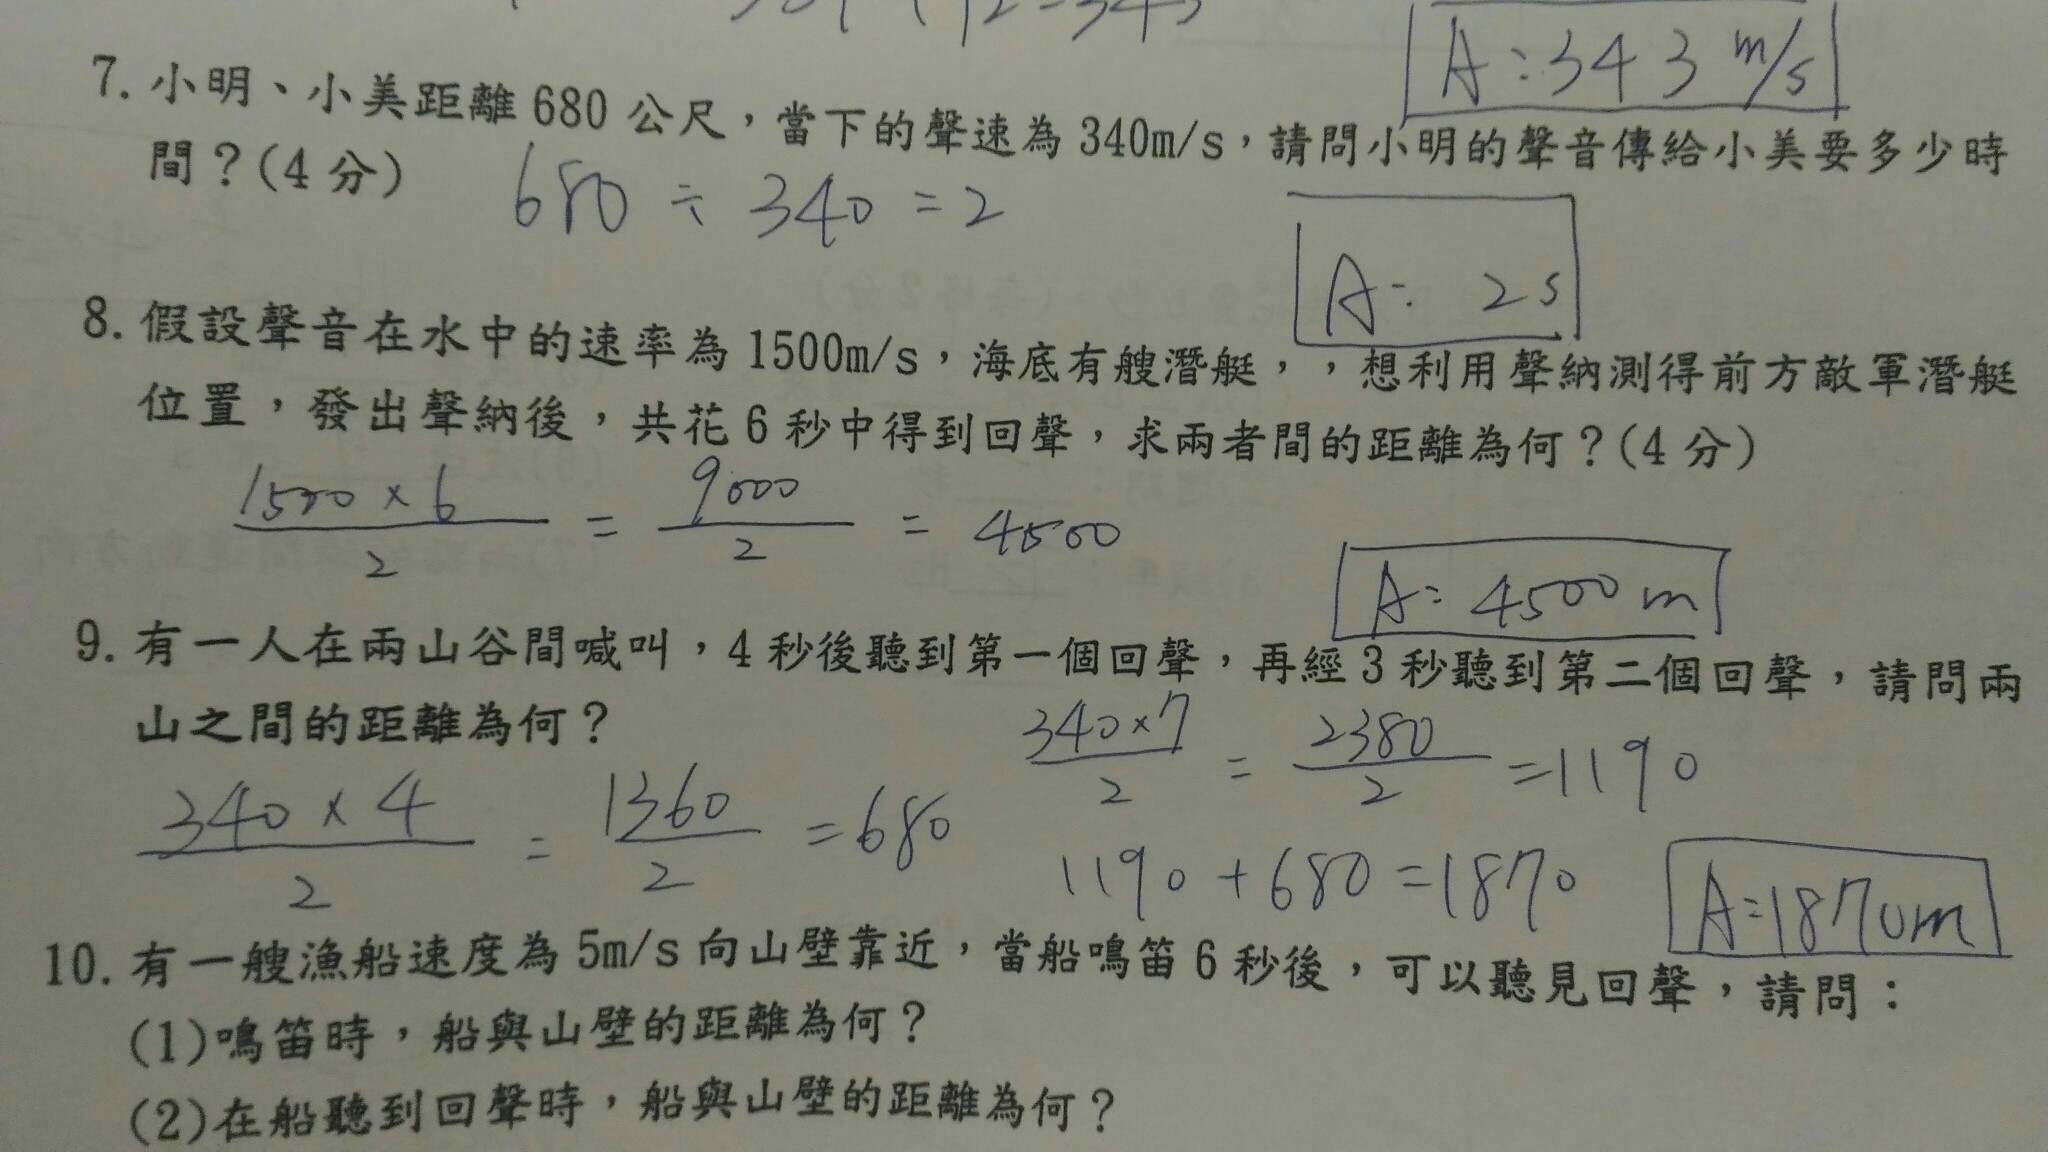 A:343 m/s
7. 小明、小美距離680公尺，當下的聲速為340m/s，請問小明的聲音傳給小美要多少時
間？(4分)
680 ÷ 340 = 2
A: 2s
8. 假設聲音在水中的速率為1500m/s，海底有艘潛艇，，想利用聲納測得前方敵軍潛艇
位置，發出聲納後，共花6秒中得到回聲，求兩者間的距離為何？(4分)
1500×6/2 = 9000/2 = 4500
A: 4500m
9. 有一人在兩山谷間喊叫，4秒後聽到第一個回聲，再經3秒聽到第二個回聲，請問兩
山之間的距離為何？
340×4/2 = 1360/2 = 680
340×7/2 = 2380/2 = 1190
1190+680=1870
A:1870m
10. 有一艘漁船速度為5m/s向山壁靠近，當船鳴笛6秒後，可以聽見回聲，請問：
(1)鳴笛時，船與山壁的距離為何？
(2)在船聽到回聲時，船與山壁的距離為何？